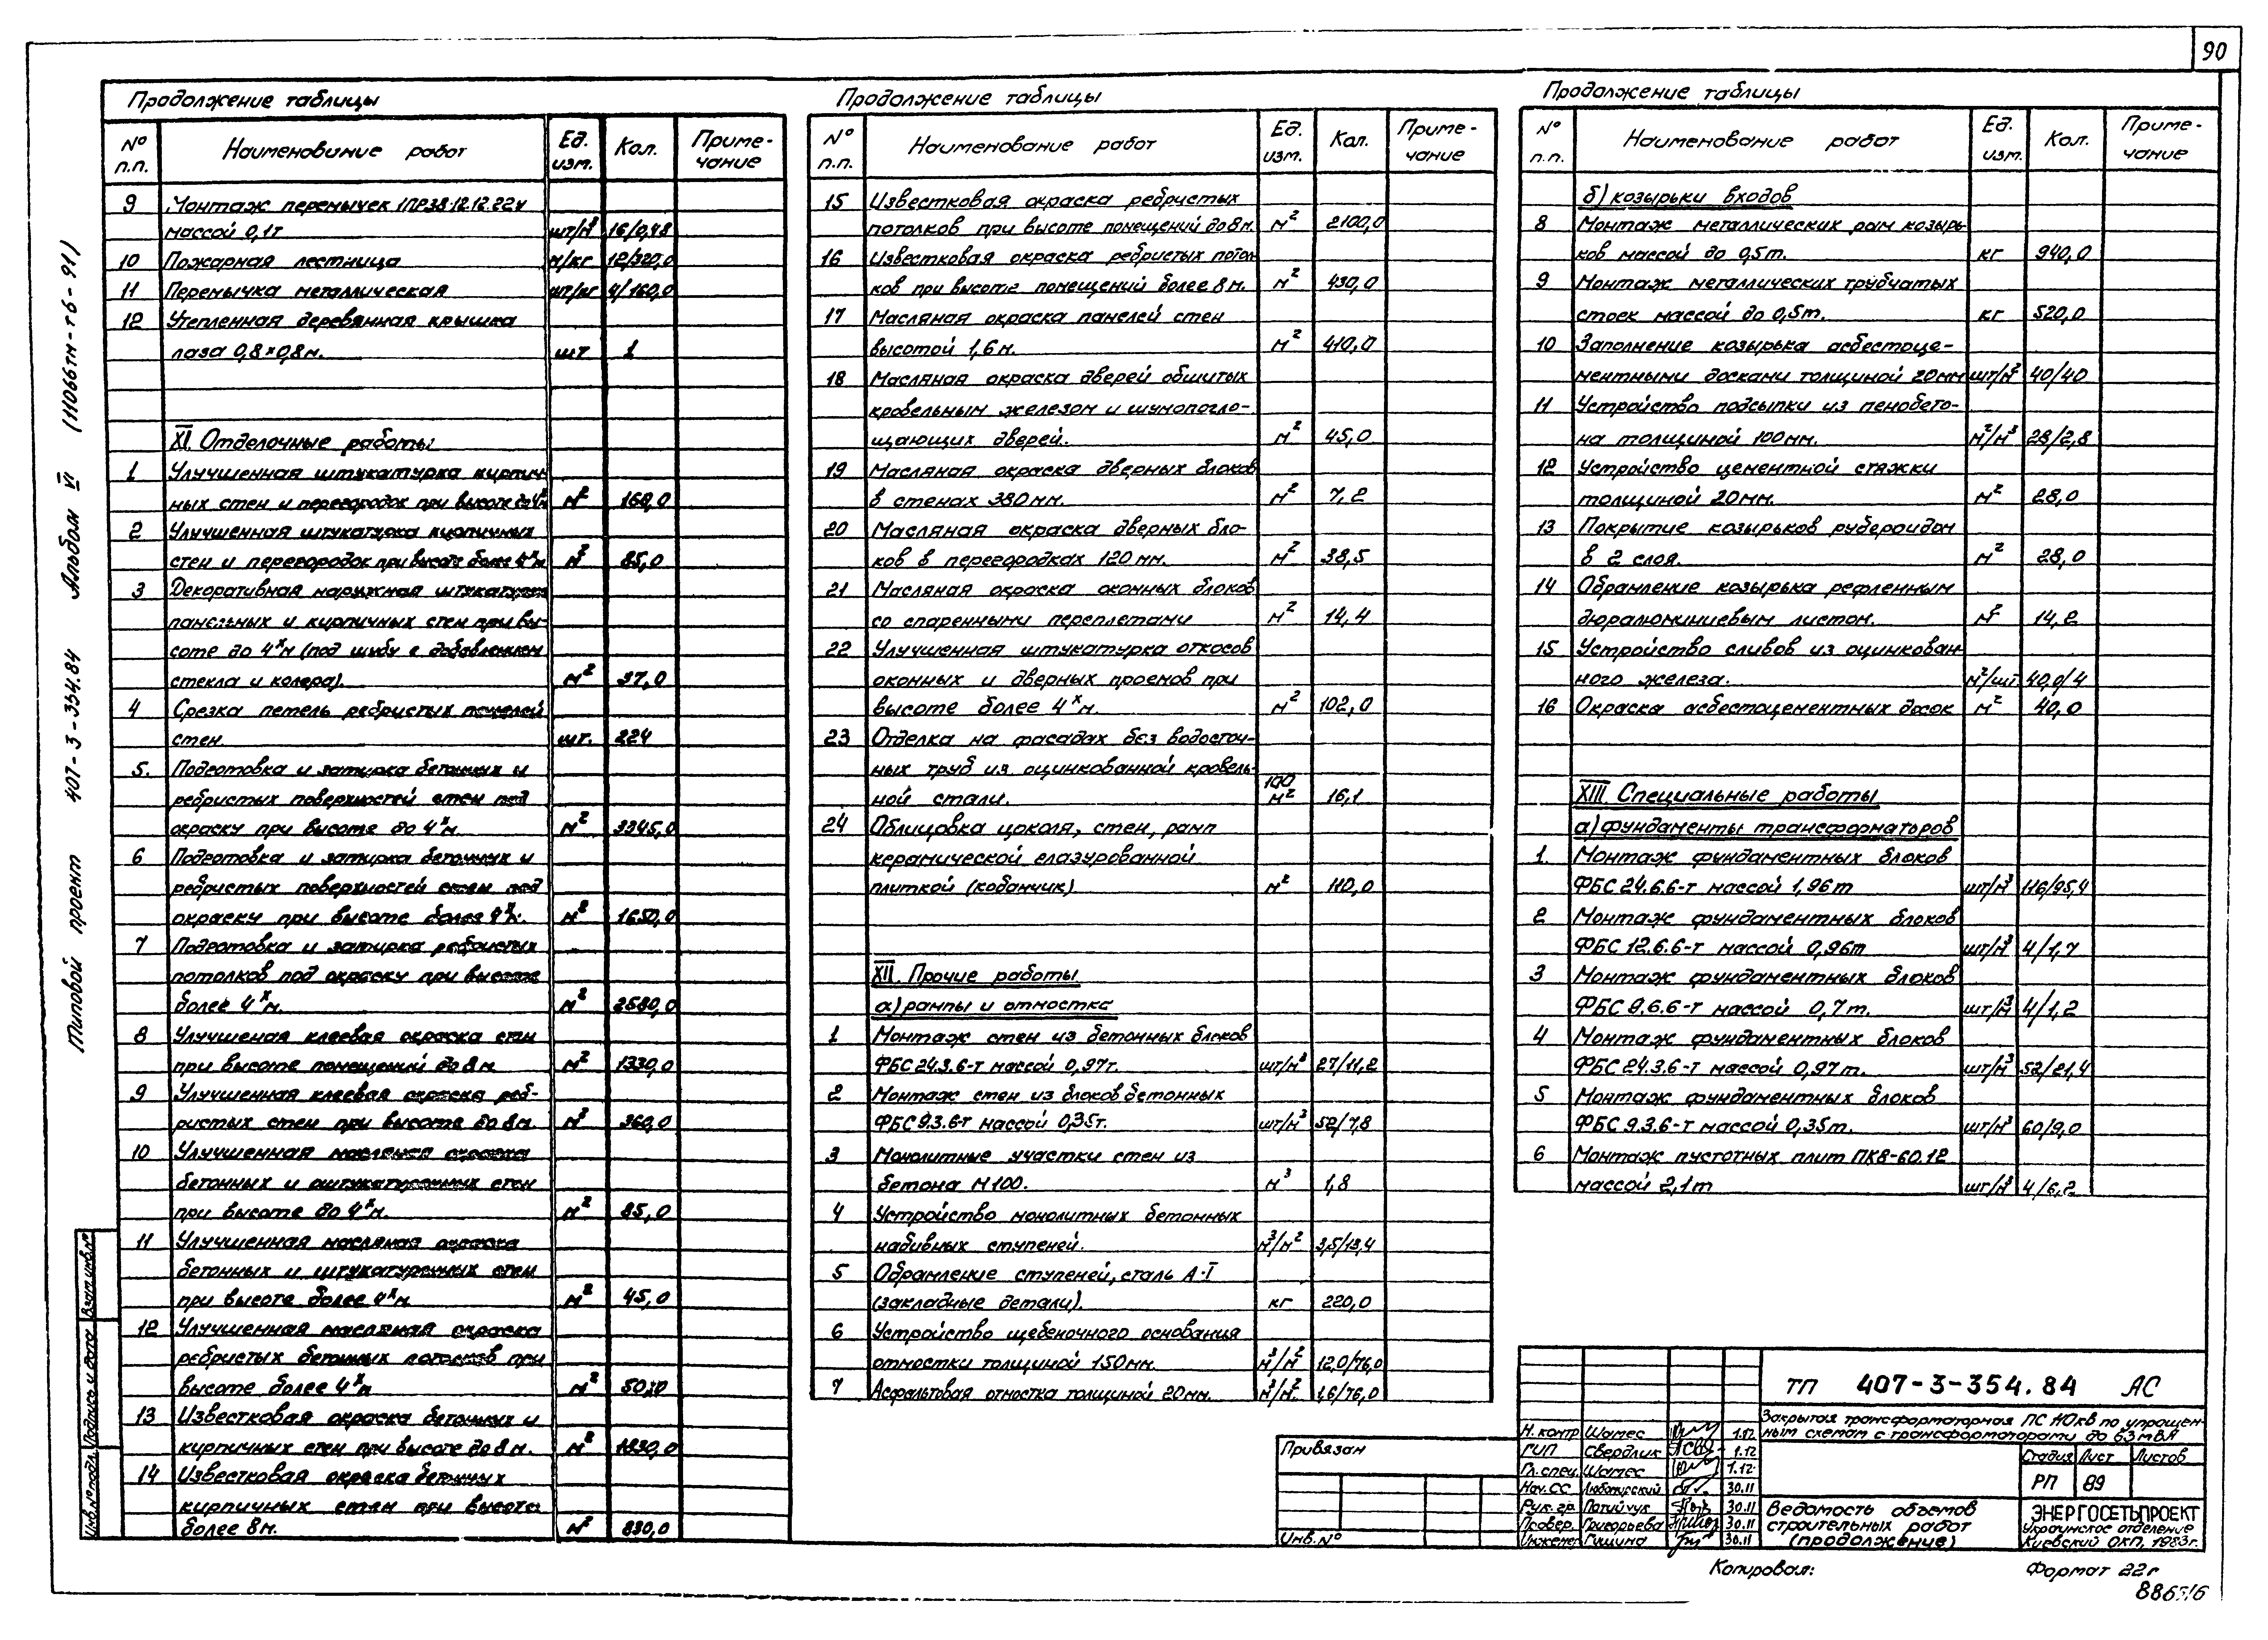 90
Продолжение таблицы
№ п.п. Наименование работ Ед. изм. Кол. Приме-чание
9 Монтаж перемычек 1ПР38.12.12.22у
массой 0,1т шт/м³ 16/0,48
10 Пожарная лестница м/кг 12/320,0
11 Перемычка металлическая шт/кг 4/160,0
12 Утепленная деревянная крышка
лаза 0,8×0,8м. шт 1
XI. Отделочные работы
1 Улучшенная штукатурка кирпич-
ных стен и перегородок при высоте до 4х м м² 160,0
2 Улучшенная штукатурка кирпичных
стен и перегородок при высоте более 4х м м² 85,0
3 Декоративная наружная штукатурка
панельных и кирпичных стен при вы-
соте до 4х м (под шубу с добавлением
стекла и колера). м² 37,0
4 Срезка петель ребристых панелей
стен. шт. 224
5. Подготовка и затирка бетонных и
ребристых поверхностей стен под
окраску при высоте до 4х м. м² 3345,0
6 Подготовка и затирка бетонных и
ребристых поверхностей стен под
окраску при высоте более 4х м. м² 1650,0
7 Подготовка и затирка ребристых
потолков под окраску при высоте
более 4х м. м² 2580,0
8 Улучшеная клеевая окраска стен
при высоте помещений до 8 м м² 1330,0
9 Улучшенная клеевая окраска реб-
ристых стен при высоте до 8 м. м² 360,0
10 Улучшенная масляная окраска
бетонных и оштукатуренных стен
при высоте до 4х м. м² 85,0
11 Улучшенная масляная окраска
бетонных и штукатуренных стен
при высоте более 4х м м² 45,0
12 Улучшенная масляная окраска
ребристых бетонных потолков при
высоте более 4х м м² 50,0
13 Известковая окраска бетонных и
кирпичных стен при высоте до 8 м. м² 1830,0
14 Известковая окраска бетонных
кирпичных стен при высоте
более 8 м. м² 830,0
Продолжение таблицы
№ п.п. Наименование работ Ед. изм. Кол. Приме-чание
15 Известковая окраска ребристых
потолков при высоте помещений до 8 м. м² 2100,0
16 Известковая окраска ребристых потол-
ков при высоте помещений более 8 м. м² 430,0
17 Масляная окраска панелей стен
высотой 1,6 м. м² 410,0
18 Масляная окраска дверей обшитых
кровельным железом и шумопогло-
щающих дверей. м² 45,0
19 Масляная окраска дверных блоков
в стенах 380 мм. м² 7,2
20 Масляная окраска дверных бло-
ков в перегородках 120 мм. м² 38,5
21 Масляная окраска оконных блоков
со спаренными переплетами м² 14,4
22 Улучшенная штукатурка откосов
оконных и дверных проемов при
высоте более 4х м. м² 102,0
23 Отделка на фасадах без водосточ-
ных труб из оцинкованной кровель-
ной стали. 100 м² 16,1
24 Облицовка цоколя, стен, рамп
керамической глазурованной
плиткой (кабанчик) м² 110,0
XII. Прочие работы
а) рампы и отмостка
1 Монтаж стен из бетонных блоков
ФБС 24.3.6-т массой 0,97т. шт/м³ 27/11,2
2 Монтаж стен из блоков бетонных
ФБС 9.3.6-т массой 0,35т. шт/м³ 52/7,8
3 Монолитные участки стен из
бетона М100. м³ 1,8
4 Устройство монолитных бетонных
набивных ступеней. м³/м² 3,5/13,4
5 Обрамление ступеней, сталь А-I
(закладные детали). кг 220,0
6 Устройство щебеночного основания
отмостки толщиной 150 мм. м³/м² 12,0/76,0
7 Асфальтовая отмостка толщиной 20 мм. м³/м² 1,6/76,0
Продолжение таблицы
№ п.п. Наименование работ Ед. изм. Кол. Приме-чание
б) козырьки входов
8 Монтаж металлических рам козырь-
ков массой до 0,5т. кг 940,0
9 Монтаж металлических трубчатых
стоек массой до 0,5т. кг 520,0
10 Заполнение козырька асбестоце-
ментными досками толщиной 20 мм шт/м² 40/40
11 Устройство подсыпки из пенобето-
на толщиной 100 мм. м²/м³ 28/2,8
12 Устройство цементной стяжки
толщиной 20 мм. м² 28,0
13 Покрытие козырьков рубероидом
в 2 слоя. м² 28,0
14 Обрамление козырька рефленным
дюралюминиевым листом. м² 14,2
15 Устройство сливов из оцинкован-
ного железа. м²/шт 40,0/4
16 Окраска асбестоцементных досок м² 40,0
XIII Специальные работы
а) фундаменты трансформаторов
1. Монтаж фундаментных блоков
ФБС 24.6.6-т массой 1,96т шт/м³ 116/95,4
2 Монтаж фундаментных блоков
ФБС 12.6.6-т массой 0,96т шт/м³ 4/1,7
3 Монтаж фундаментных блоков
ФБС 9.6.6-т массой 0,7т. шт/м³ 4/1,2
4 Монтаж фундаментных блоков
ФБС 24.3.6-т массой 0,97т. шт/м³ 52/21,4
5 Монтаж фундаментных блоков
ФБС 9.3.6-т массой 0,35т. шт/м³ 60/9,0
6 Монтаж пустотных плит ПК8-60.12
массой 2,1т шт/м³ 4/6,2
Типовой проект 407-3-354.84 Альбом VI (11066тм-т6-91)
Инв.№ подл. Подпись и дата Взам.инв.№
Привязан
Инв.№
ТП 407-3-354.84 АС
Закрытая трансформаторная ПС 110кв по упрощен-
ным схемам с трансформаторами до 63 мвА
Н. контр Шамес 1.12
ГИП Свердлик 1.12
Гл. спец. Шамес 1.12
Нач. СС 30.11
Рук. гр. 30.11
Провер. Григорьева 30.11
Инженер Гущина 30.11
Стадия Лист Листов
РП 89
Ведомость объемов
строительных работ
(продолжение)
ЭНЕРГОСЕТЬПРОЕКТ
Украинское отделение
Киевский ОКП, 1983г.
Копировал:
Формат 22г